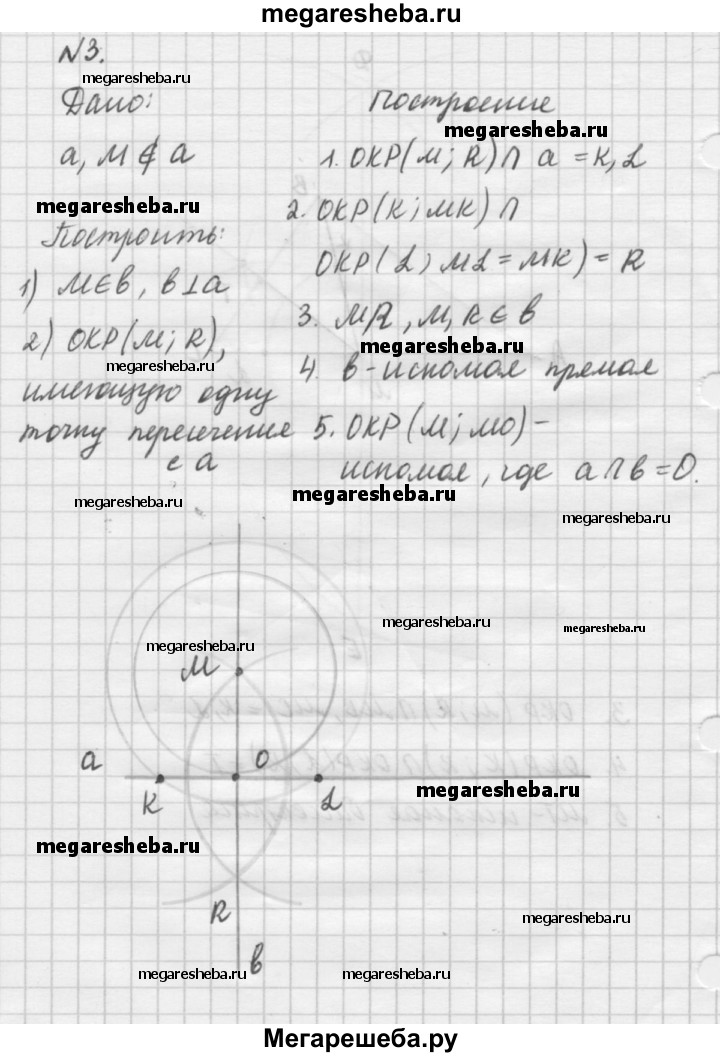 megaresheba.ru
N3.
megaresheba.ru
Дано:
a, M ∉ a
megaresheba.ru
Построить:
1) M∈b, b⊥a
2) ОКР(M; R),
megaresheba.ru
имеющую одну
точку пересечения
с a
megaresheba.ru
Построение
megaresheba.ru
1. ОКР(M; R)∩ a = K, L
2. ОКР(K; MK) ∩
ОКР(L; ML = MK) = R
3. MR, M, R ∈ b
megaresheba.ru
4. b - искомая прямая
5. ОКР(M; MO) -
искомая, где a∩b=O.
megaresheba.ru
megaresheba.ru
megaresheba.ru
megaresheba.ru
megaresheba.ru
M
a
O
K
L
megaresheba.ru
megaresheba.ru
R
megaresheba.ru
b
megaresheba.ru
megaresheba.ru
Мегарешеба.ру